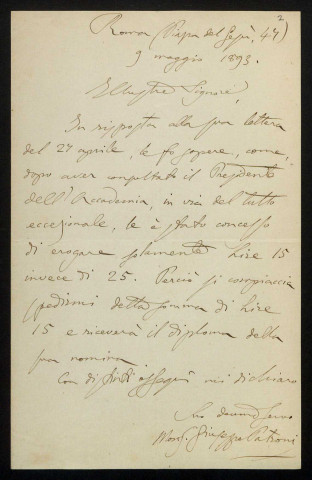 2
Roma (Piazza del Gesù, 47)
9 maggio 1893.
Illustre Signore,
In risposta alla sua lettera
del 27 aprile, le fo sapere, come,
dopo aver consultato il Presidente
dell'Accademia, in via del tutto
eccezionale, le è stato concesso
di erogare solamente Lire 15
invece di 25. Perciò si compiaccia
spedirmi detta somma di Lire
15 e riceverà il diploma della
sua nomina.
Con distinti ossequi mi dichiaro
Suo devmo Servo
Mons. Giuseppe Patroni